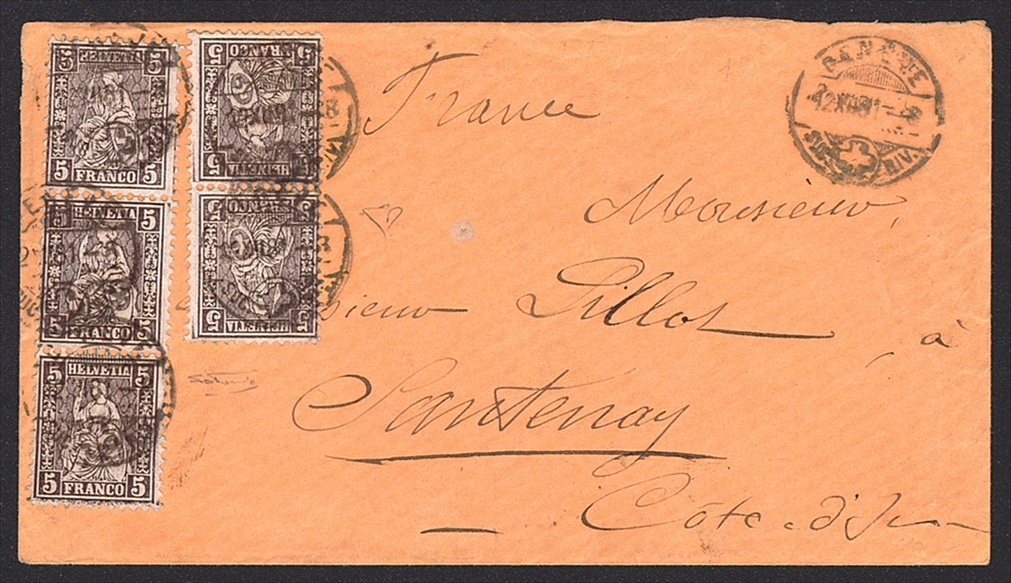 France
GENÈVE
12 XII 81 - 8
Monsieur,
Monsieur Lillot
à
Santenay
Côte-d'Or
5 HELVETIA 5
5 FRANCO 5
5 HELVETIA 5
5 FRANCO 5
5 HELVETIA 5
5 FRANCO 5
5 HELVETIA 5
5 FRANCO 5
5 HELVETIA 5
5 FRANCO 5